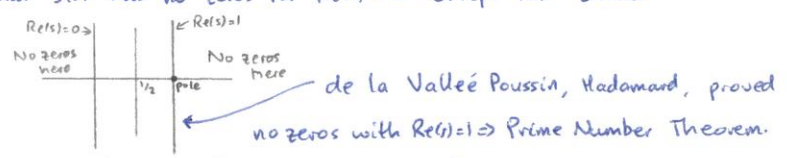 Re(s)=0
Re(s)=1
No zeros
here
No zeros
here
1/2
pole
de la Valleé Poussin, Hadamard, proved
no zeros with Re(s)=1 => Prime Number Theorem.